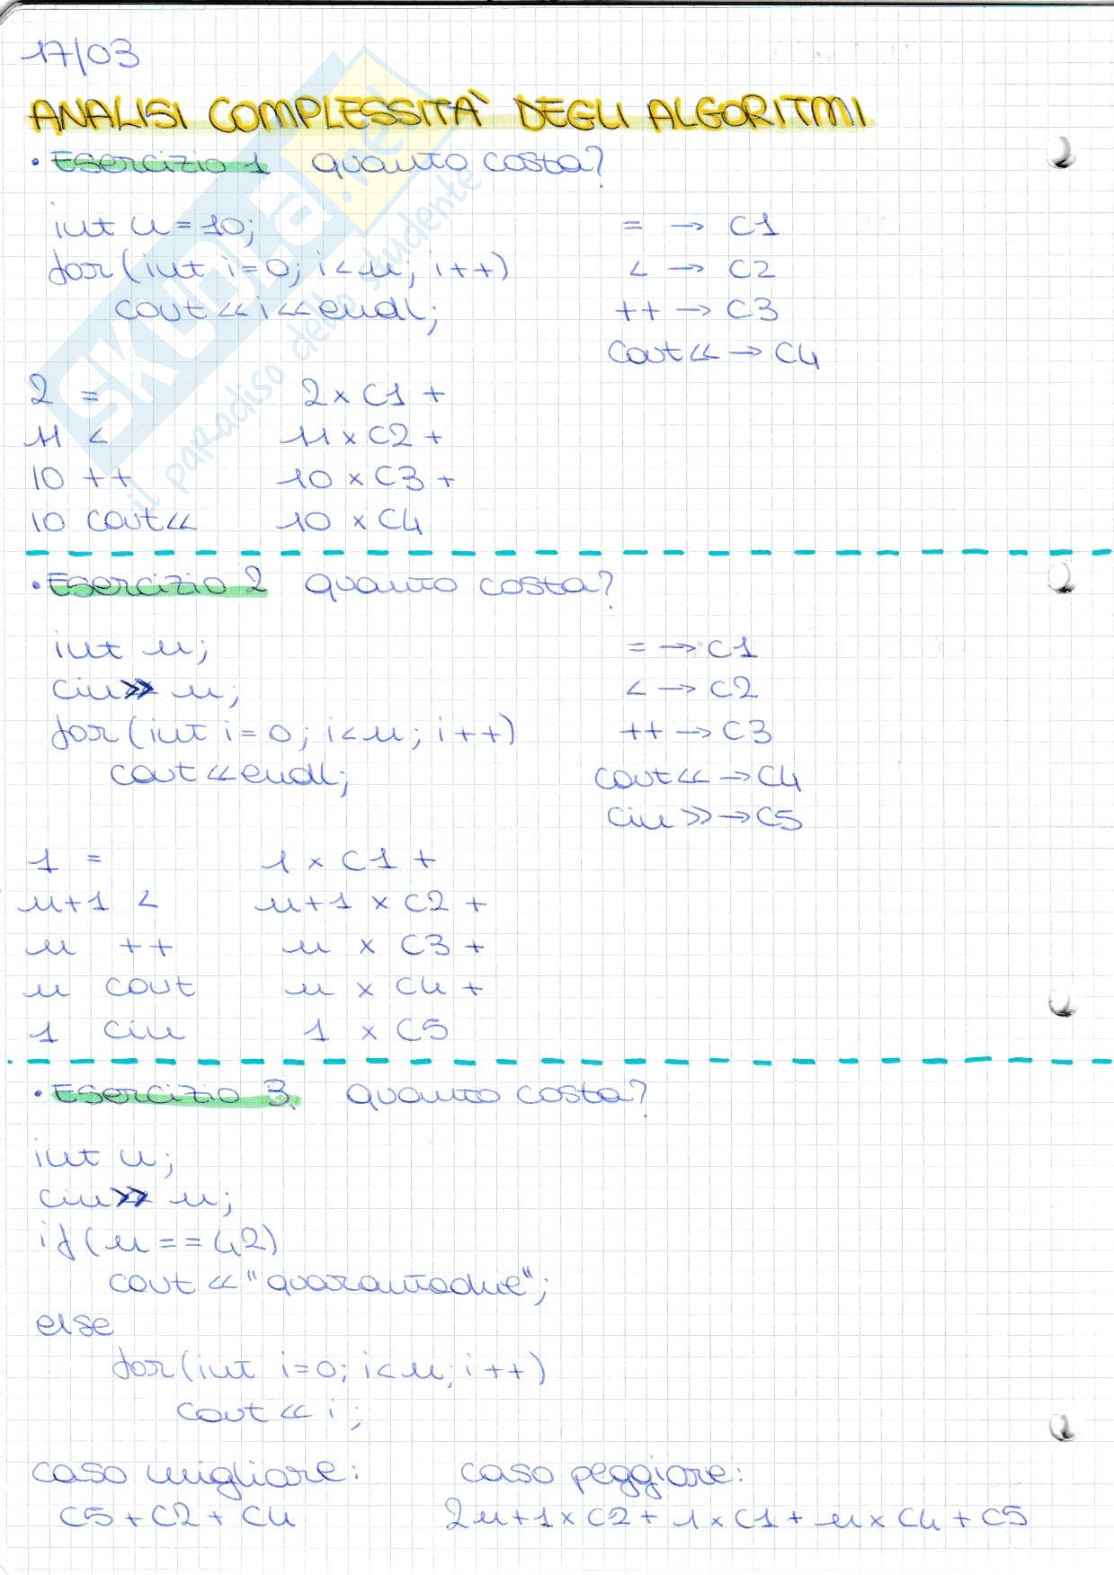 17/03
ANALISI COMPLESSITÀ DEGLI ALGORITMI
• Esercizio 1 quanto costa?
int n=10;
for(int i=0; i<n; i++)
cout<<i<<endl;
= → C1
< → C2
++ → C3
cout<< → C4
2 = 2 x C1 +
11 < 11 x C2 +
10 ++ 10 x C3 +
10 cout<< 10 x C4
• Esercizio 2 quanto costa?
int n;
cin>> n;
for(int i=0; i<n; i++)
cout<<endl;
= → C1
< → C2
++ → C3
cout<< → C4
cin >> → C5
1 = 1 x C1 +
n+1 < n+1 x C2 +
n ++ n x C3 +
n cout n x C4 +
1 cin 1 x C5
• Esercizio 3. quanto costa?
int n;
cin>> n;
if(n==42)
cout << "quarantadue";
else
for(int i=0; i<n; i++)
cout << i;
caso migliore: caso peggiore:
C5+C2+C4 2n+1xC2+1xC1+nxC4+C5
SKUOLA.net
il paradiso dello studente